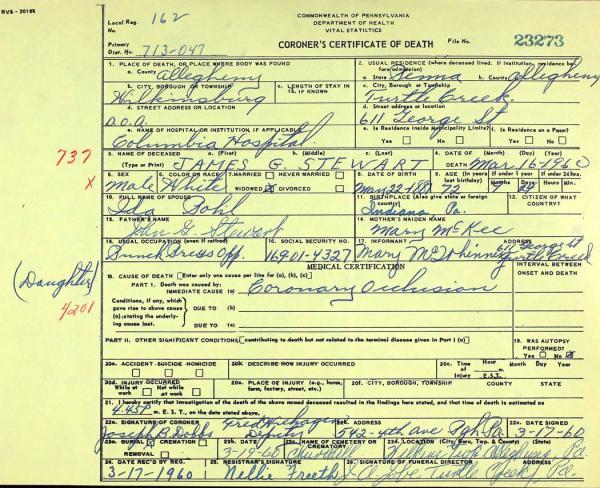 HVS - 20188
COMMONWEALTH OF PENNSYLVANIA
DEPARTMENT OF HEALTH
VITAL STATISTICS
Local Reg. No. 162
Primary Dist. No. 713-047
CORONER'S CERTIFICATE OF DEATH
File No. 23273
1. PLACE OF DEATH, OR PLACE WHERE BODY WAS FOUND
a. County Allegheny
2. USUAL RESIDENCE (where deceased lived. If institution, residence before admission)
a. State Penna b. County Allegheny
b. CITY, BOROUGH OR TOWNSHIP
Wilkinsburg
c. LENGTH OF STAY IN 1b. IF KNOWN
c. City, Borough or Township
Turtle Creek
d. STREET ADDRESS OR LOCATION
D.O.A.
d. Street address or location
611 George St
e. NAME OF HOSPITAL OR INSTITUTION, IF APPLICABLE
Columbia Hospital
e. Is Residence inside Municipality Limits?
Yes No
f. Is Residence on a Farm?
Yes No
737
x
3. NAME OF DECEASED (Type or Print)
a. (First) b. (Middle) c. (Last)
JAMES G. STEWART
4. DATE OF DEATH (Month) (Day) (Year)
Mar. 16-1960
5. SEX
Male
6. COLOR OR RACE
White
7. MARRIED NEVER MARRIED
WIDOWED DIVORCED
8. DATE OF BIRTH
9. AGE (In years last birthday)
72
If under 1 year
If under 24 hours
24
10. FULL NAME OF SPOUSE
Ida Bohl
11. BIRTHPLACE (Also give state or foreign country)
Indiana Pa.
12. CITIZEN OF WHAT COUNTRY?
13. FATHER'S NAME
John G. Stewart
14. MOTHER'S MAIDEN NAME
Mary McKee
15. USUAL OCCUPATION (even if retired)
Punch Press Opp.
16. SOCIAL SECURITY NO.
17. INFORMANT ADDRESS
611 George St
Turtle Creek
(Daughter)
4201
MEDICAL CERTIFICATION
INTERVAL BETWEEN ONSET AND DEATH
18. CAUSE OF DEATH Enter only one cause per line for (a), (b), (c)
PART I. Death was caused by:
IMMEDIATE CAUSE (a) Coronary Occlusion
Conditions, if any, which gave rise to above cause (a), stating the underlying cause last.
DUE TO (b)
DUE TO (c)
PART II. OTHER SIGNIFICANT CONDITIONS contributing to death but not related to the terminal disease given in Part I (a)
19. WAS AUTOPSY PERFORMED?
Yes No
20a. ACCIDENT SUICIDE HOMICIDE
20b. DESCRIBE HOW INJURY OCCURRED
20c. Time of Injury Hour Month Day Year
m. E.S.T.
20d. INJURY OCCURRED
While at work Not while at work
20e. PLACE OF INJURY (e.g., home, farm, factory, street, etc.)
20f. CITY, BOROUGH, TOWNSHIP COUNTY STATE
21. I hereby certify that investigation of the death of the above named deceased resulted in the findings here stated, and that time of death is estimated at
4:45P m. E.S.T., on the date stated above.
22a. SIGNATURE OF CORONER
Joseph B. Dobbs
Deputy
22b. ADDRESS
542-4th Ave Pgh. Pa
22c. DATE SIGNED
3-17-60
23a. BURIAL CREMATION REMOVAL
23b. DATE
3-19-60
23c. NAME OF CEMETERY OR CREMATORY
Churchill
23d. LOCATION (City, Boro, Twp. & County) (State)
Wilkins Twp Allegheny, Pa.
24. DATE REC'D BY REG.
3-17-1960
25. REGISTRAR'S SIGNATURE
Nellie Freeth
26. SIGNATURE OF FUNERAL DIRECTOR ADDRESS
Turtle Creek, Pa.